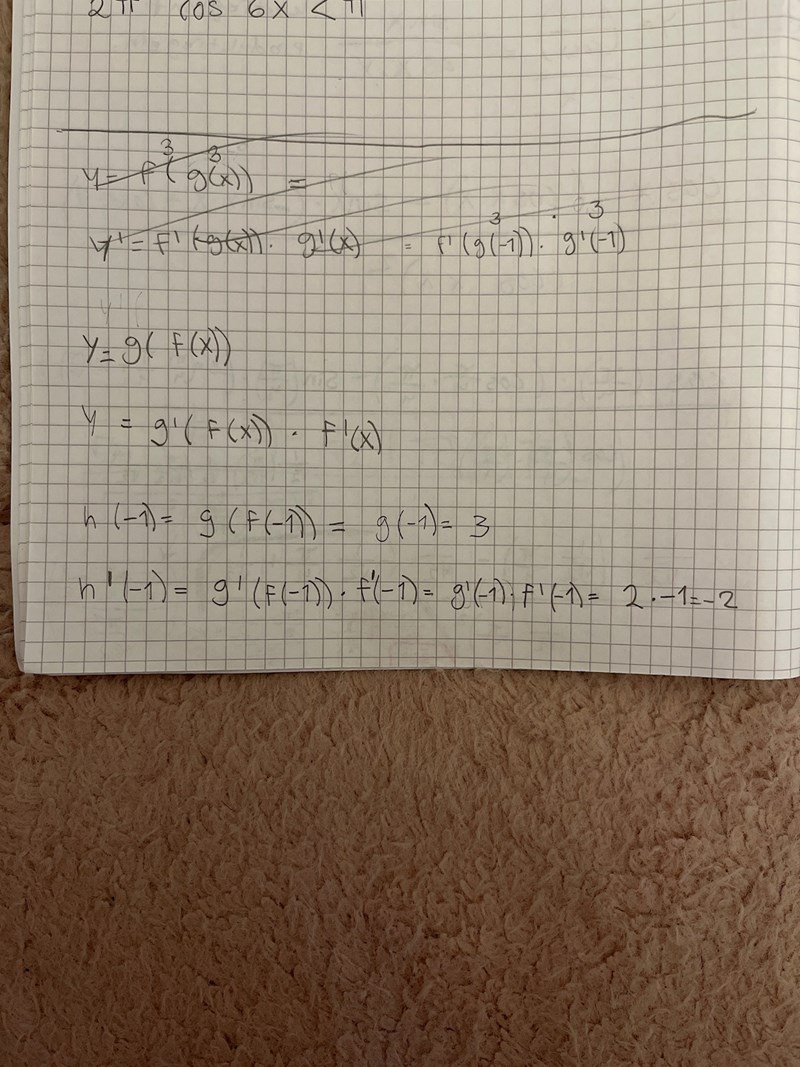 2π cos 6x < π
y = f³(g³(x)) =
y' = f'(g(x)) · g'(x) = f'(g³(-1)) · g'³(-1)
y = g(f(x))
y = g'(f(x)) · f'(x)
h(-1) = g(f(-1)) = g(-1) = 3
h'(-1) = g'(f(-1)) · f'(-1) = g'(-1) · f'(-1) = 2 · -1 = -2